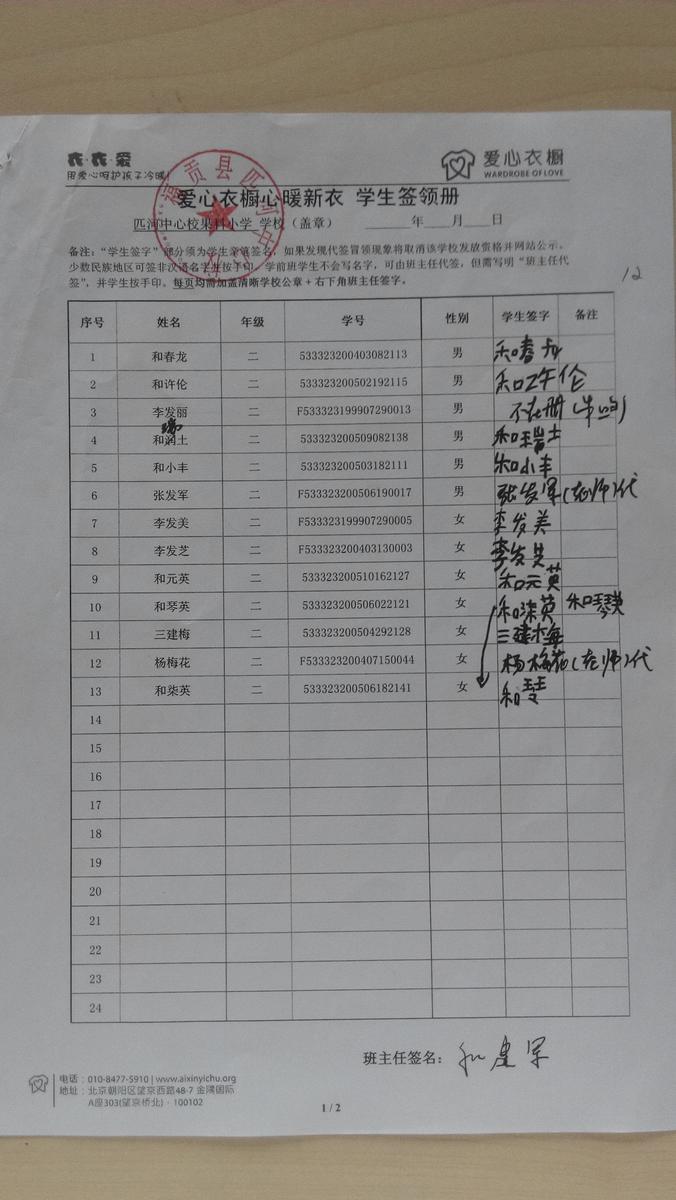 衣·衣·爱
用爱心呵护孩子冷暖!
爱心衣橱
WARDROBE OF LOVE
福贡县匹河中
爱心衣橱心暖新衣 学生签领册
匹河中心校果科小学 学校（盖章） ____年____月____日
备注：“学生签字”部分须为学生亲笔签名，如果发现代签冒领现象将取消该学校发放资格并网站公示。
少数民族地区可签非汉语名字并按手印。学前班学生不会写名字，可由班主任代签，但需写明“班主任代
签”，并学生按手印。每页均需加盖清晰学校公章+右下角班主任签字。
12
序号 姓名 年级 学号 性别 学生签字 备注
1 和春龙 二 533323200403082113 男 和春龙
2 和许伦 二 533323200502192115 男 和许伦
3 李发丽 二 F533323199907290013 男 不在册
4 和润土 瑞 二 533323200509082138 男 和瑞土
5 和小丰 二 533323200503182111 男 和小丰
6 张发军 二 F533323200506190017 男 张发军(老师)代
7 李发美 二 F533323199907290005 女 李发美
8 李发芝 二 F533323200403130003 女 李发芝
9 和元英 二 533323200510162127 女 和元英
10 和琴英 二 533323200506022121 女 和柒英 和琴英
11 三建梅 二 533323200504292128 女 三建梅
12 杨梅花 二 F533323200407150044 女 杨梅花(老师)代
13 和柒英 二 533323200506182141 女 和
14
15
16
17
18
19
20
21
22
23
24
班主任签名： 和建军
电话：010-8477-5910 | www.aixinyichu.org
地址：北京朝阳区望京西路48-7 金隅国际
A座303(望京桥北)·100102
1 / 2